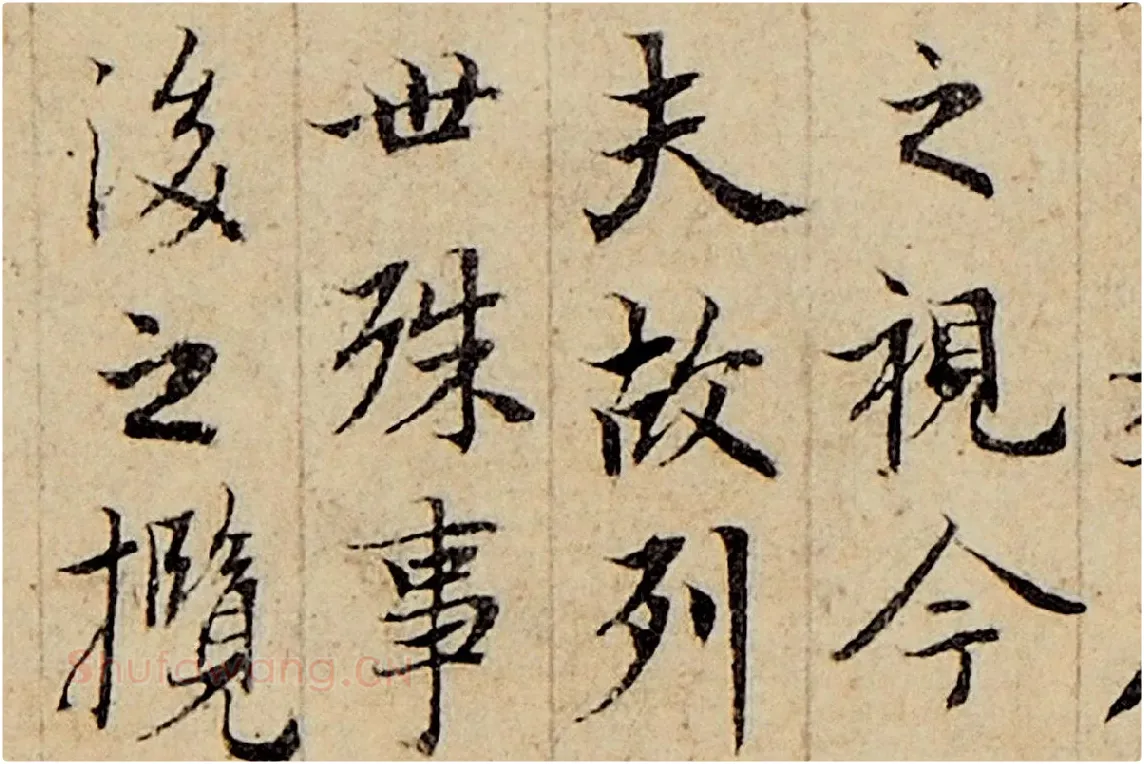 之視今
夫故列
世殊事
後之攬
Shufawang.CN